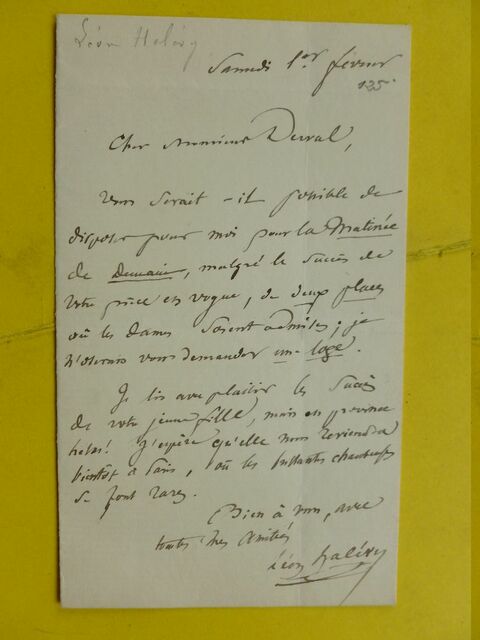 Léon Halévy
Samedi 1er février
125
Cher Monsieur Derval,
Vous serait-il possible de
disposer pour moi pour la Matinée
de Demain, malgré le succès de
votre pièce en vogue, de deux places
où les dames soient admises; je
n'oserais vous demander une loge.
Je lis avec plaisir les succès
de votre jeune fille, mais en province
hélas! J'espère qu'elle nous reviendra
bientôt à Paris, où les chanteuses
se font rares.
Bien à vous, avec
toutes mes amitiés
Léon Halévy